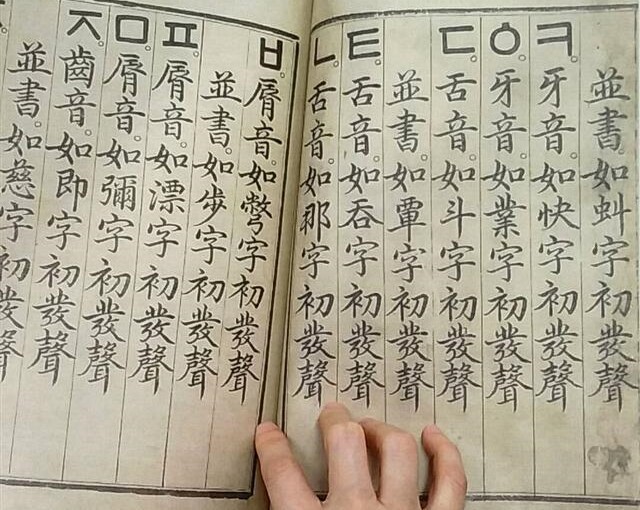 並書。如虯字初發聲
ㅋ。牙音。如快字初發聲
ㆁ。牙音。如業字初發聲
ㄷ。舌音。如斗字初發聲
並書。如覃字初發聲
ㅌ。舌音。如呑字初發聲
ㄴ。舌音。如那字初發聲
ㅂ。脣音。如彆字初發聲
並書。如步字初發聲
ㅍ。脣音。如漂字初發聲
ㅁ。脣音。如彌字初發聲
ㅈ。齒音。如即字初發聲
並書。如慈字初發聲